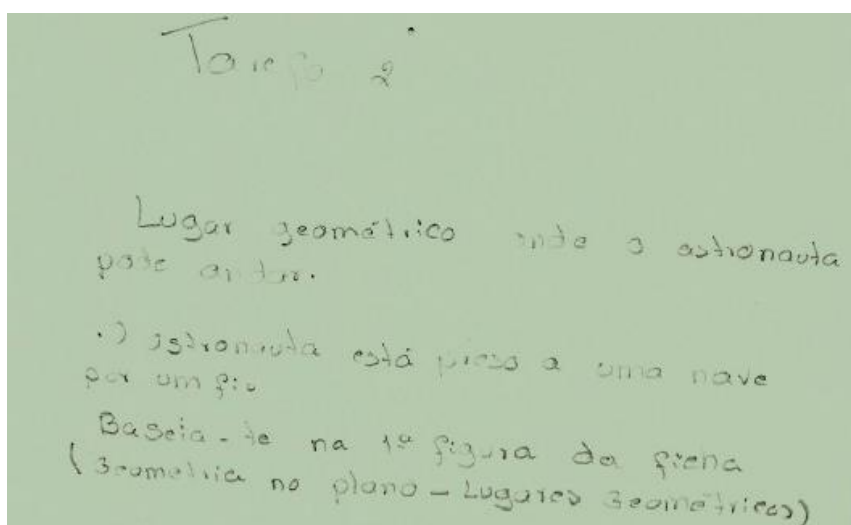 Tarefa 2
Lugar geométrico onde o astronauta
pode andar.
.) astronauta está preso a uma nave
por um fio
Baseia-te na 1ª figura da ficha
(Geometria no plano - Lugares Geométricos)